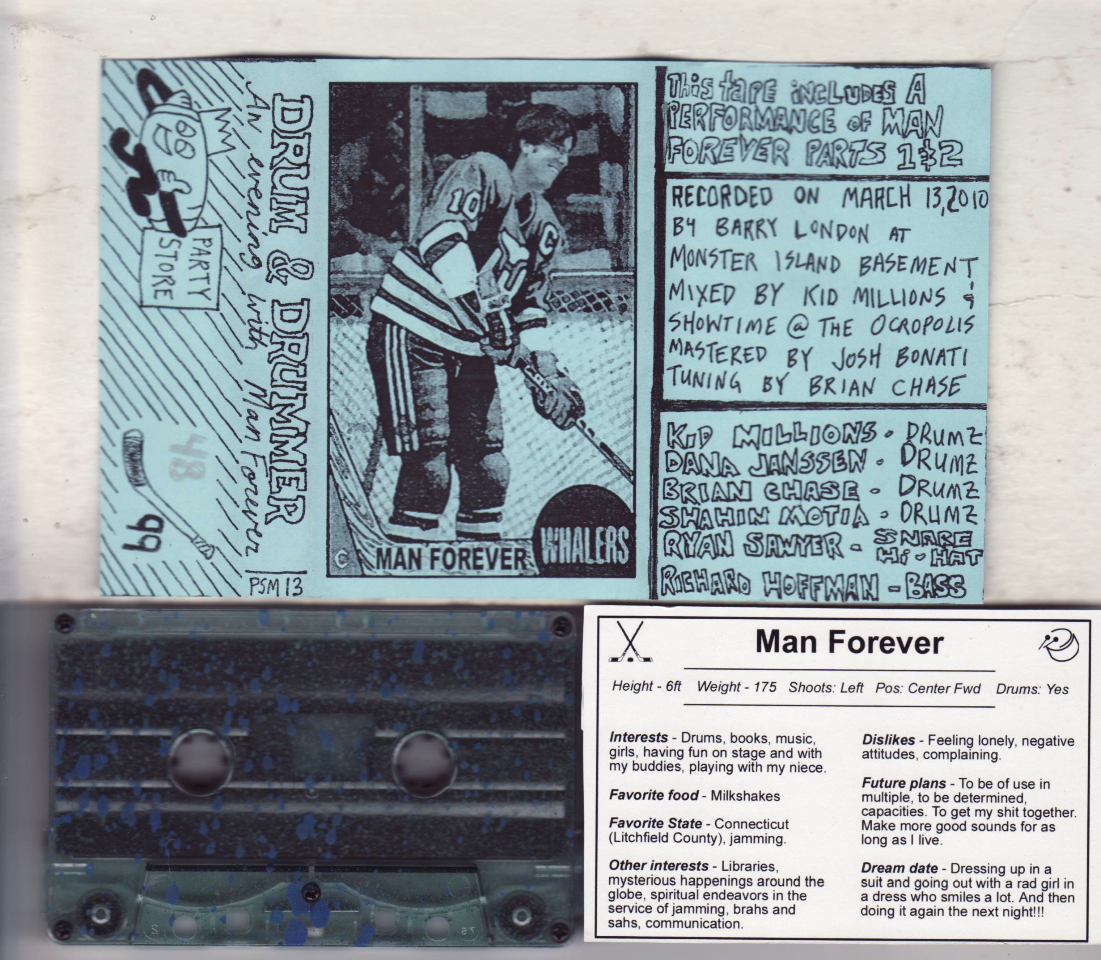 PARTY
STORE
DRUM & DRUMMER
An evening with Man Forever
48
99
PSM 13
10
C
C
MAN FOREVER
WHALERS
THIS TAPE INCLUDES A
PERFORMANCE OF MAN
FOREVER PARTS 1&2
RECORDED ON MARCH 13, 2010
BY BARRY LONDON AT
MONSTER ISLAND BASEMENT
MIXED BY KID MILLIONS &
SHOWTIME @ THE OCROPOLIS
MASTERED BY JOSH BONATI
TUNING BY BRIAN CHASE
KID MILLIONS - DRUMZ
DANA JANSSEN - DRUMZ
BRIAN CHASE - DRUMZ
SHAHIN MOTIA - DRUMZ
RYAN SAWYER - SNARE
HI-HAT
RICHARD HOFFMAN - BASS
Man Forever
Height - 6ft Weight - 175 Shoots: Left Pos: Center Fwd Drums: Yes
Interests - Drums, books, music,
girls, having fun on stage and with
my buddies, playing with my niece.
Favorite food - Milkshakes
Favorite State - Connecticut
(Litchfield County), jamming.
Other interests - Libraries,
mysterious happenings around the
globe, spiritual endeavors in the
service of jamming, brahs and
sahs, communication.
Dislikes - Feeling lonely, negative
attitudes, complaining.
Future plans - To be of use in
multiple, to be determined,
capacities. To get my shit together.
Make more good sounds for as
long as I live.
Dream date - Dressing up in a
suit and going out with a rad girl in
a dress who smiles a lot. And then
doing it again the next night!!!